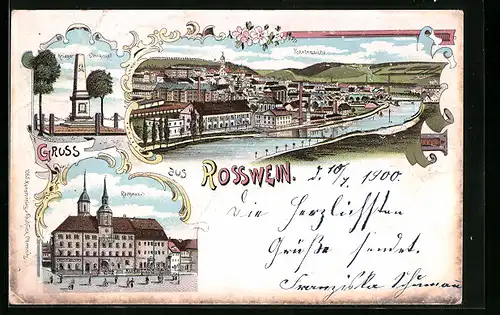 Krieger Denkmal
Totalansicht
GRUSS
AUS
ROSSWEIN.
d. 10/7. 1900.
Rathaus
Die herzlichsten
Grüße sendet.
Franziska Schuman